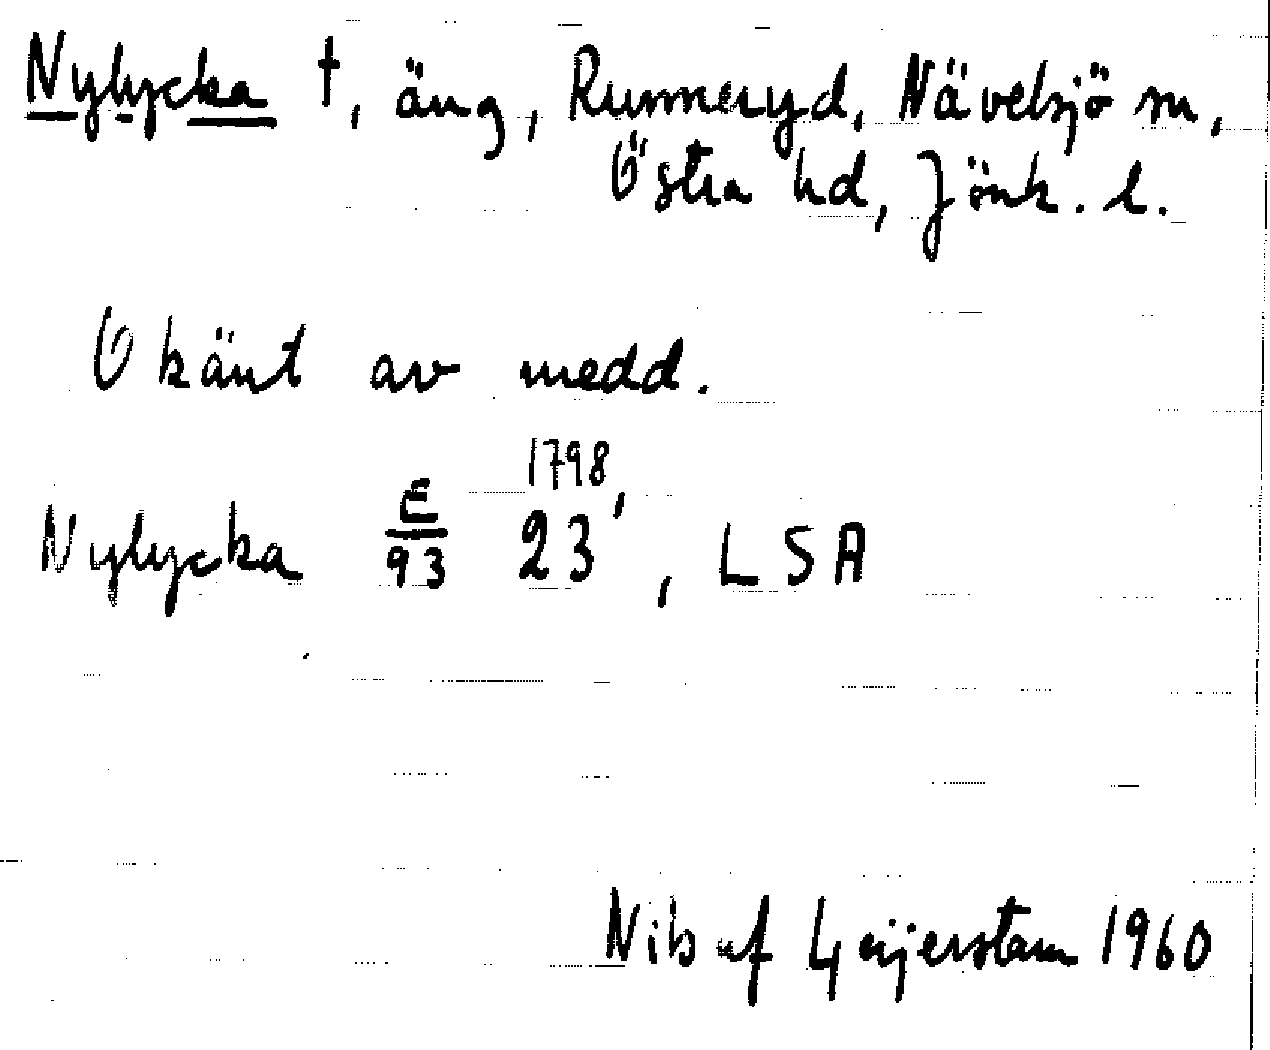 Nylycka †, äng, Rummeryd, Nävelsjö sn,
Östra hd, Jönk. l.
Okänt av medd.
Nylycka E/93 23', 1798, LSA
Nils af Geijerstam 1960